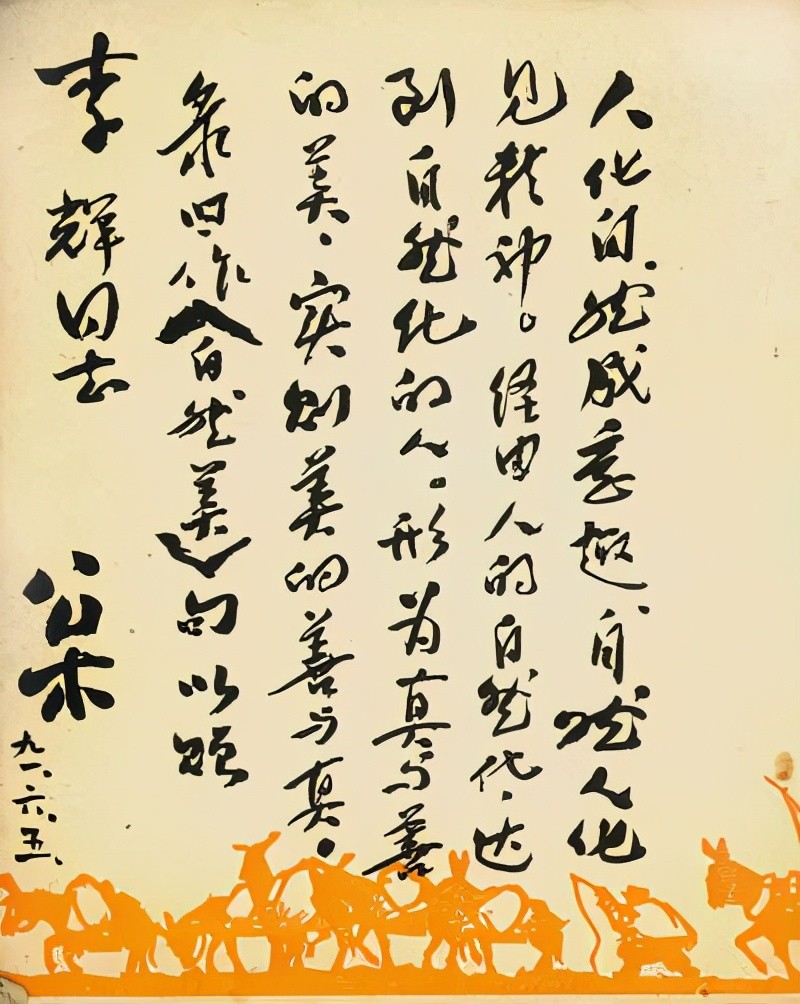 人化自然成意趣、自然人化
见精神。经由人的自然化、达
到自然化的人。形为真与善
的美、实则美的善与真。
录旧作《自然美》句以赠
李辉同志
公木
九一、六、五、